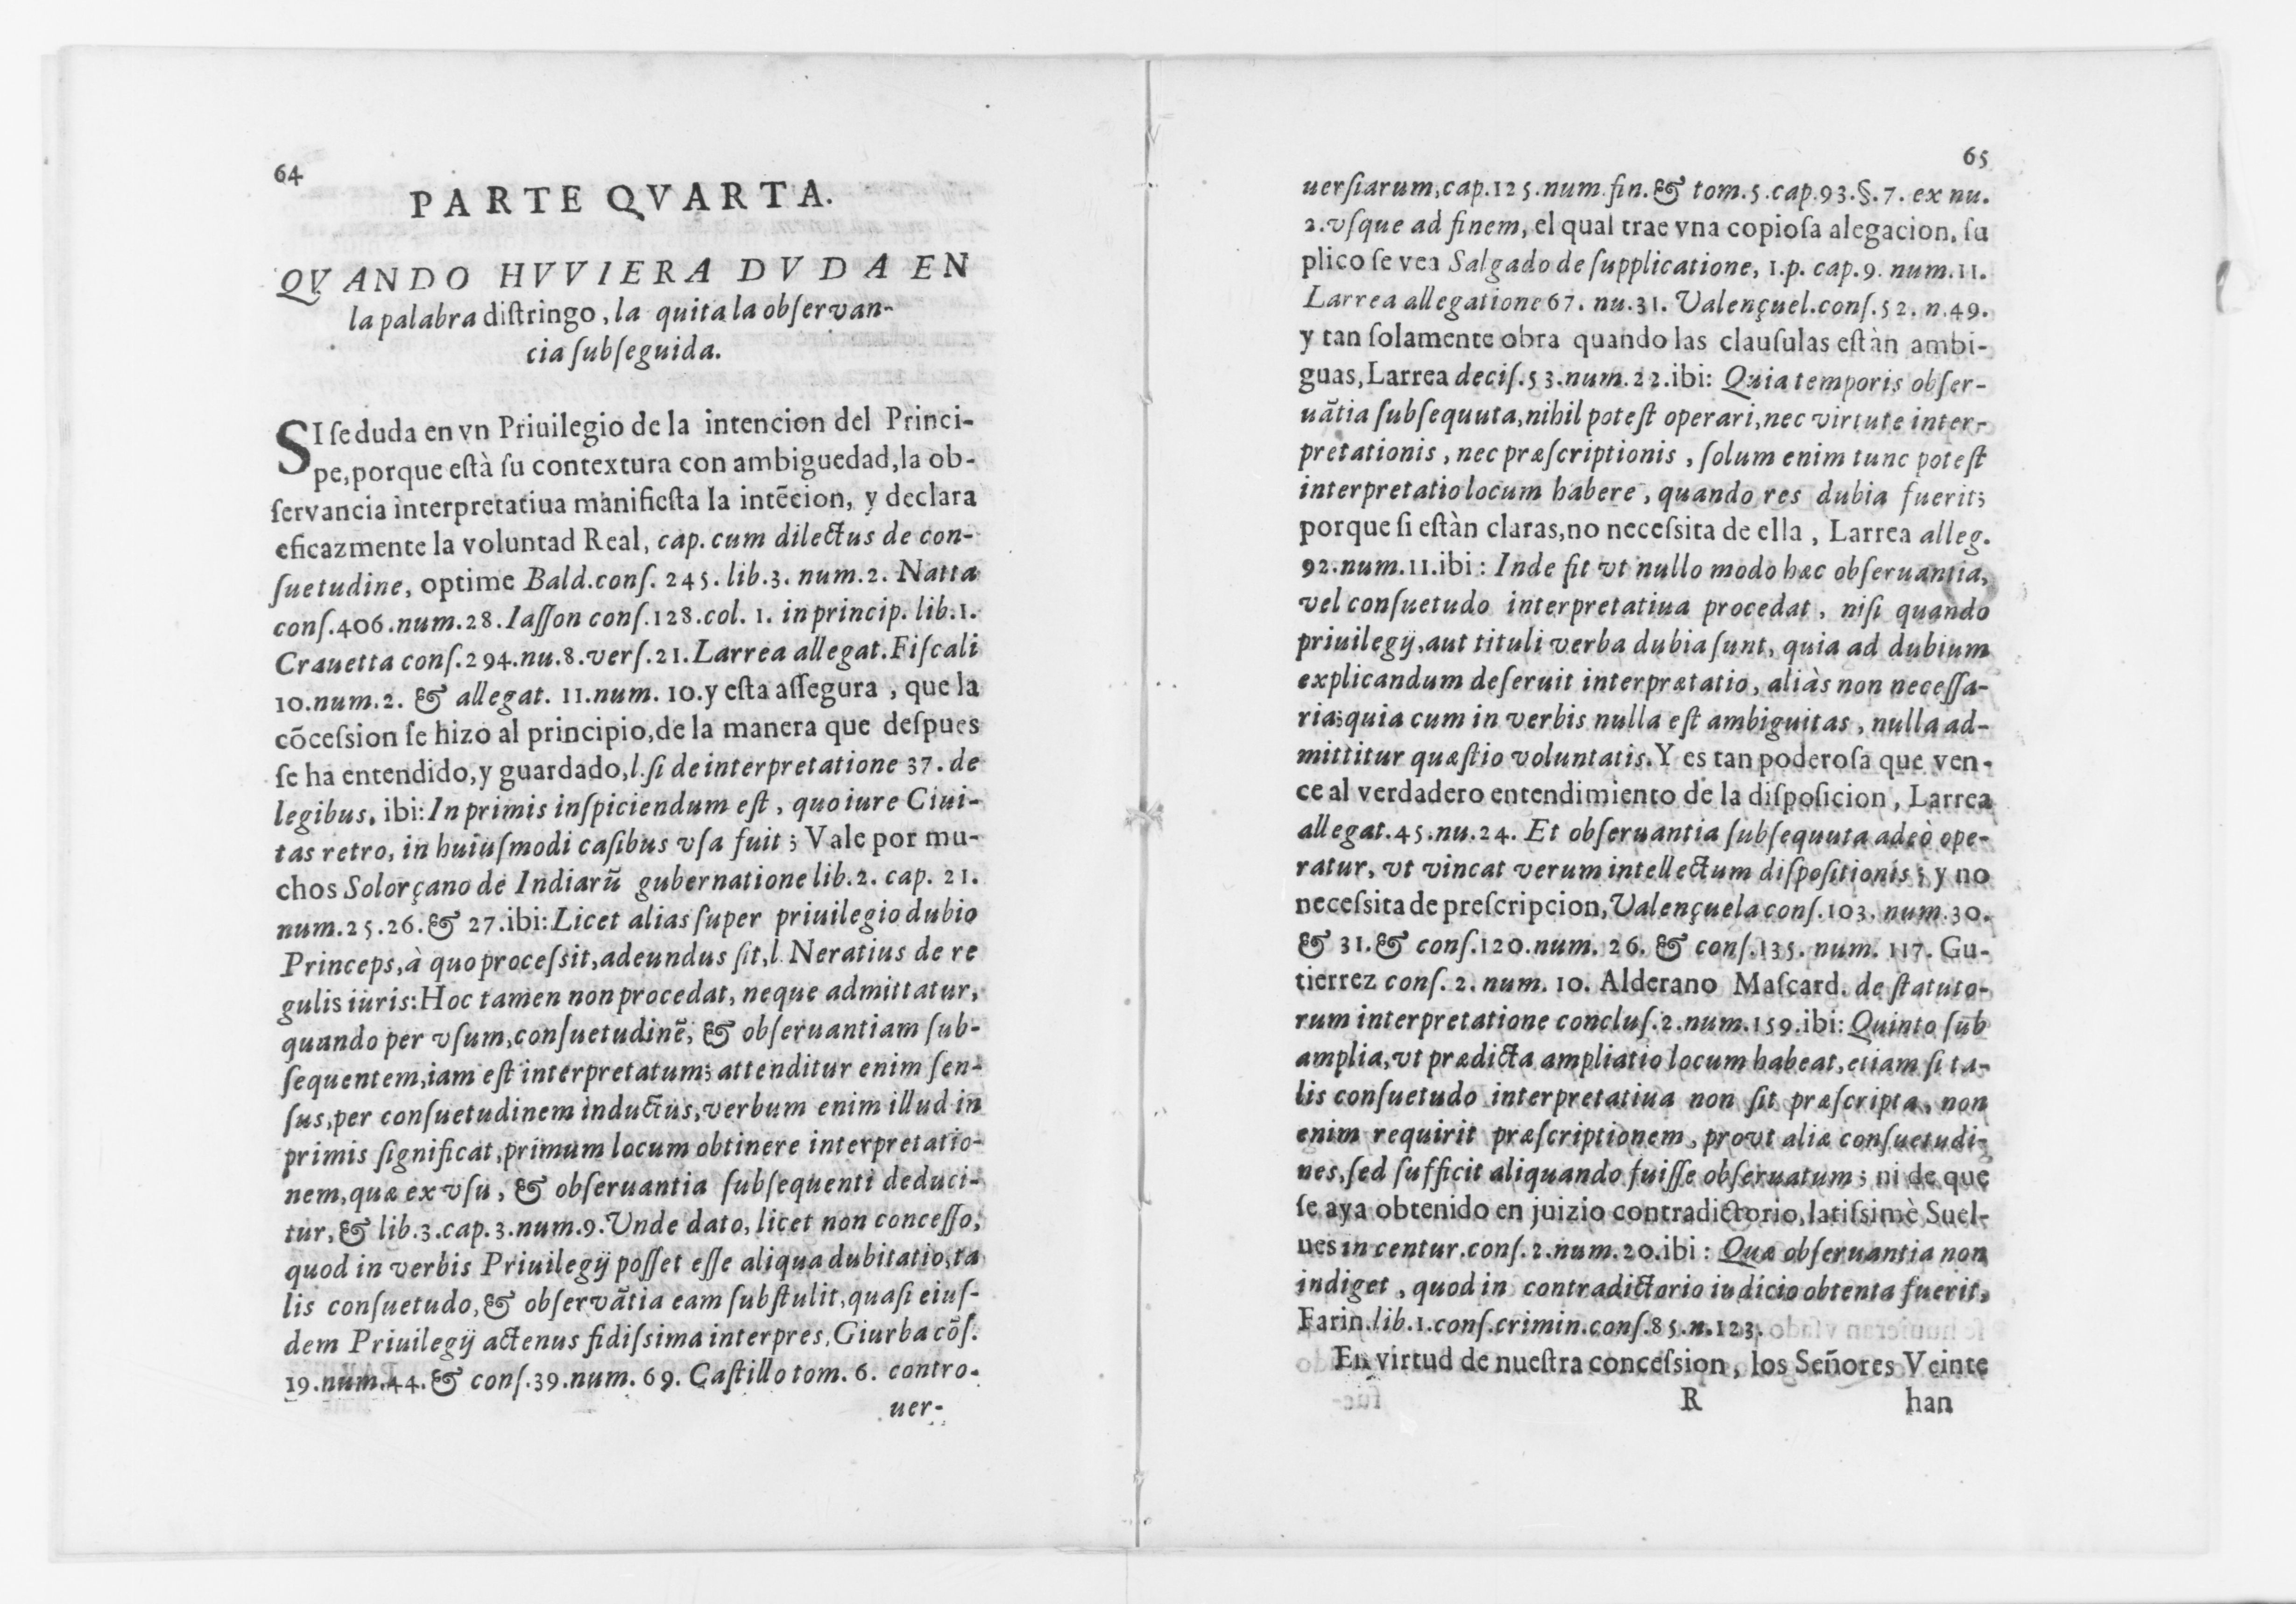 64
PARTE QVARTA.
QVANDO HVVIERA DVDA EN
la palabra diſtringo, la quita la obſervan-
cia ſubſeguida.
SI ſe duda en vn Priuilegio de la intencion del Princi-
pe, porque eſtà ſu contextura con ambiguedad, la ob-
ſervancia interpretatiua manifieſta la intẽcion, y declara
eficazmente la voluntad Real, cap. cum dilectus de con-
ſuetudine, optime Bald. conſ. 245. lib. 3. num. 2. Natta
conſ. 406. num. 28. Iaſſon conſ. 128. col. 1. in princip. lib. 1.
Crauetta conſ. 294. nu. 8. verſ. 21. Larrea allegat. Fiſcali
10. num. 2. & allegat. 11. num. 10. y eſta aſſegura, que la
cõceſsion ſe hizo al principio, de la manera que deſpues
ſe ha entendido, y guardado, l. ſi de interpretatione 37. de
legibus, ibi: In primis inſpiciendum eſt, quo iure Ciui-
tas retro, in huiuſmodi caſibus vſa fuit; Vale por mu-
chos Solorçano de Indiarũ gubernatione lib. 2. cap. 21.
num. 25. 26. & 27. ibi: Licet alias ſuper priuilegio dubio
Princeps, à quo proceſsit, adeundus ſit, l. Neratius de re
gulis iuris: Hoc tamen non procedat, neque admittatur,
quando per vſum, conſuetudinẽ, & obſeruantiam ſub-
ſequentem, iam eſt interpretatum; attenditur enim ſen-
ſus, per conſuetudinem inductus, verbum enim illud in
primis ſignificat, primum locum obtinere interpretatio-
nem, quæ ex vſu, & obſeruantia ſubſequenti deduci-
tur, & lib. 3. cap. 3. num. 9. Unde dato, licet non conceſſo,
quod in verbis Priuilegij poſſet eſſe aliqua dubitatio, ta
lis conſuetudo, & obſervãtia eam ſubſtulit, quaſi eiuſ-
dem Priuilegij actenus fidiſsima interpres, Giurba cõſ.
19. num. 44. & conſ. 39. num. 69. Caſtillo tom. 6. contro-
uer-
65
uerſiarum, cap. 125. num. fin. & tom. 5. cap. 93. §. 7. ex nu.
2. vſque ad finem, el qual trae vna copioſa alegacion, ſu
plico ſe vea Salgado de ſupplicatione, 1. p. cap. 9. num. 11.
Larrea allegatione 67. nu. 31. Valençuel. conſ. 52. n. 49.
y tan ſolamente obra quando las clauſulas eſtàn ambi-
guas, Larrea deciſ. 53. num. 22. ibi: Quia temporis obſer-
uãtia ſubſequuta, nihil poteſt operari, nec virtute inter-
pretationis, nec præſcriptionis, ſolum enim tunc poteſt
interpretatio locum habere, quando res dubia fuerit;
porque ſi eſtàn claras, no neceſsita de ella, Larrea alleg.
92. num. 11. ibi: Inde fit vt nullo modo hæc obſeruantia,
vel conſuetudo interpretatiua procedat, niſi quando
priuilegij, aut tituli verba dubia ſunt, quia ad dubium
explicandum deſeruit interprætatio, aliàs non neceſſa-
ria; quia cum in verbis nulla eſt ambiguitas, nulla ad-
mittitur quæſtio voluntatis. Y es tan poderoſa que ven-
ce al verdadero entendimiento de la diſpoſicion, Larrea
allegat. 45. nu. 24. Et obſeruantia ſubſequuta adeò ope-
ratur, vt vincat verum intellectum diſpoſitionis; y no
neceſsita de preſcripcion, Valençuela conſ. 103. num. 30.
& 31. & conſ. 120. num. 26. & conſ. 135. num. 117. Gu-
tierrez conſ. 2. num. 10. Alderano Maſcard. de ſtatuto-
rum interpretatione concluſ. 2. num. 159. ibi: Quinto ſub
amplia, vt prædicta ampliatio locum habeat, etiam ſi ta-
lis conſuetudo interpretatiua non ſit præſcripta, non
enim requirit præſcriptionem, prout aliæ conſuetudi-
nes, ſed ſufficit aliquando fuiſſe obſeruatum; ni de que
ſe aya obtenido en juizio contradictorio, latiſsimè Suel-
ues in centur. conſ. 2. num. 20. ibi: Quæ obſeruantia non
indiget, quod in contradictorio iudicio obtenta fuerit,
Farin. lib. 1. conſ. crimin. conſ. 85. n. 123.
En virtud de nueſtra conceſsion, los Señores Veinte
R han